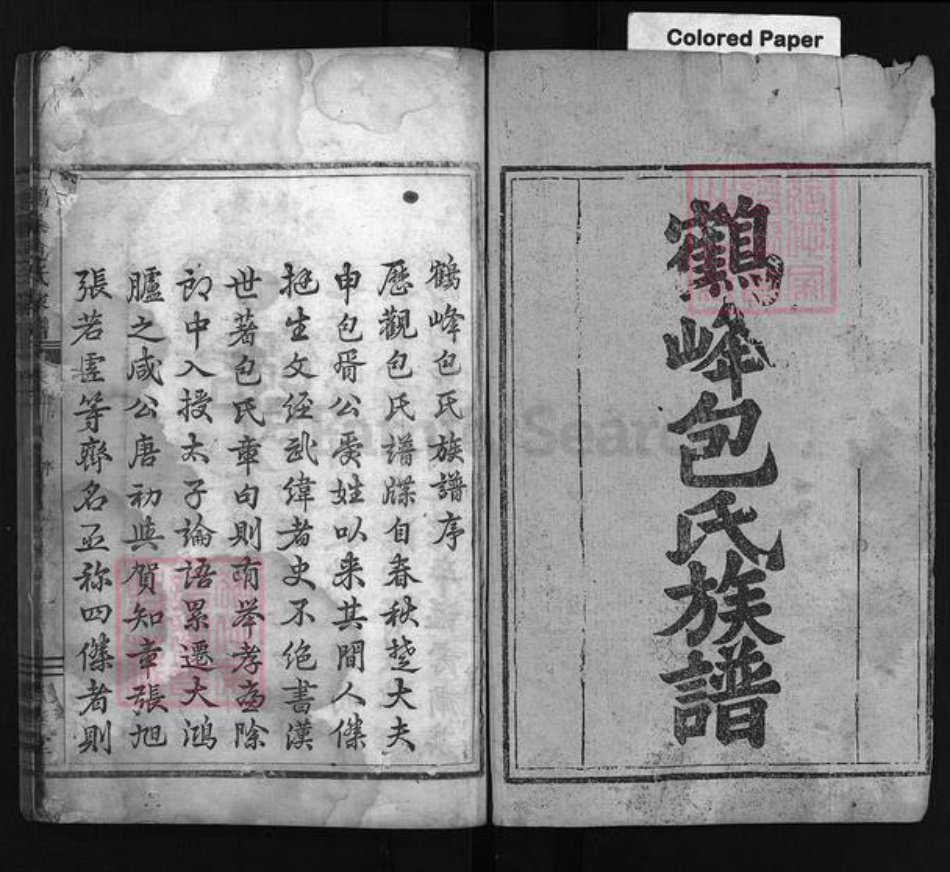 Colored Paper
鶴峰包氏族譜
鶴峰包氏族譜序
歷觀包氏譜牒自春秋楚大夫
申包胥公受姓以来其間人傑
挺生文経武緯者史不絶書漢
世著包氏章句則有举孝亷除
郎中入授太子論語累遷大鴻
臚之咸公唐初與賀知章張旭
張若虛等齊名並称四傑者則